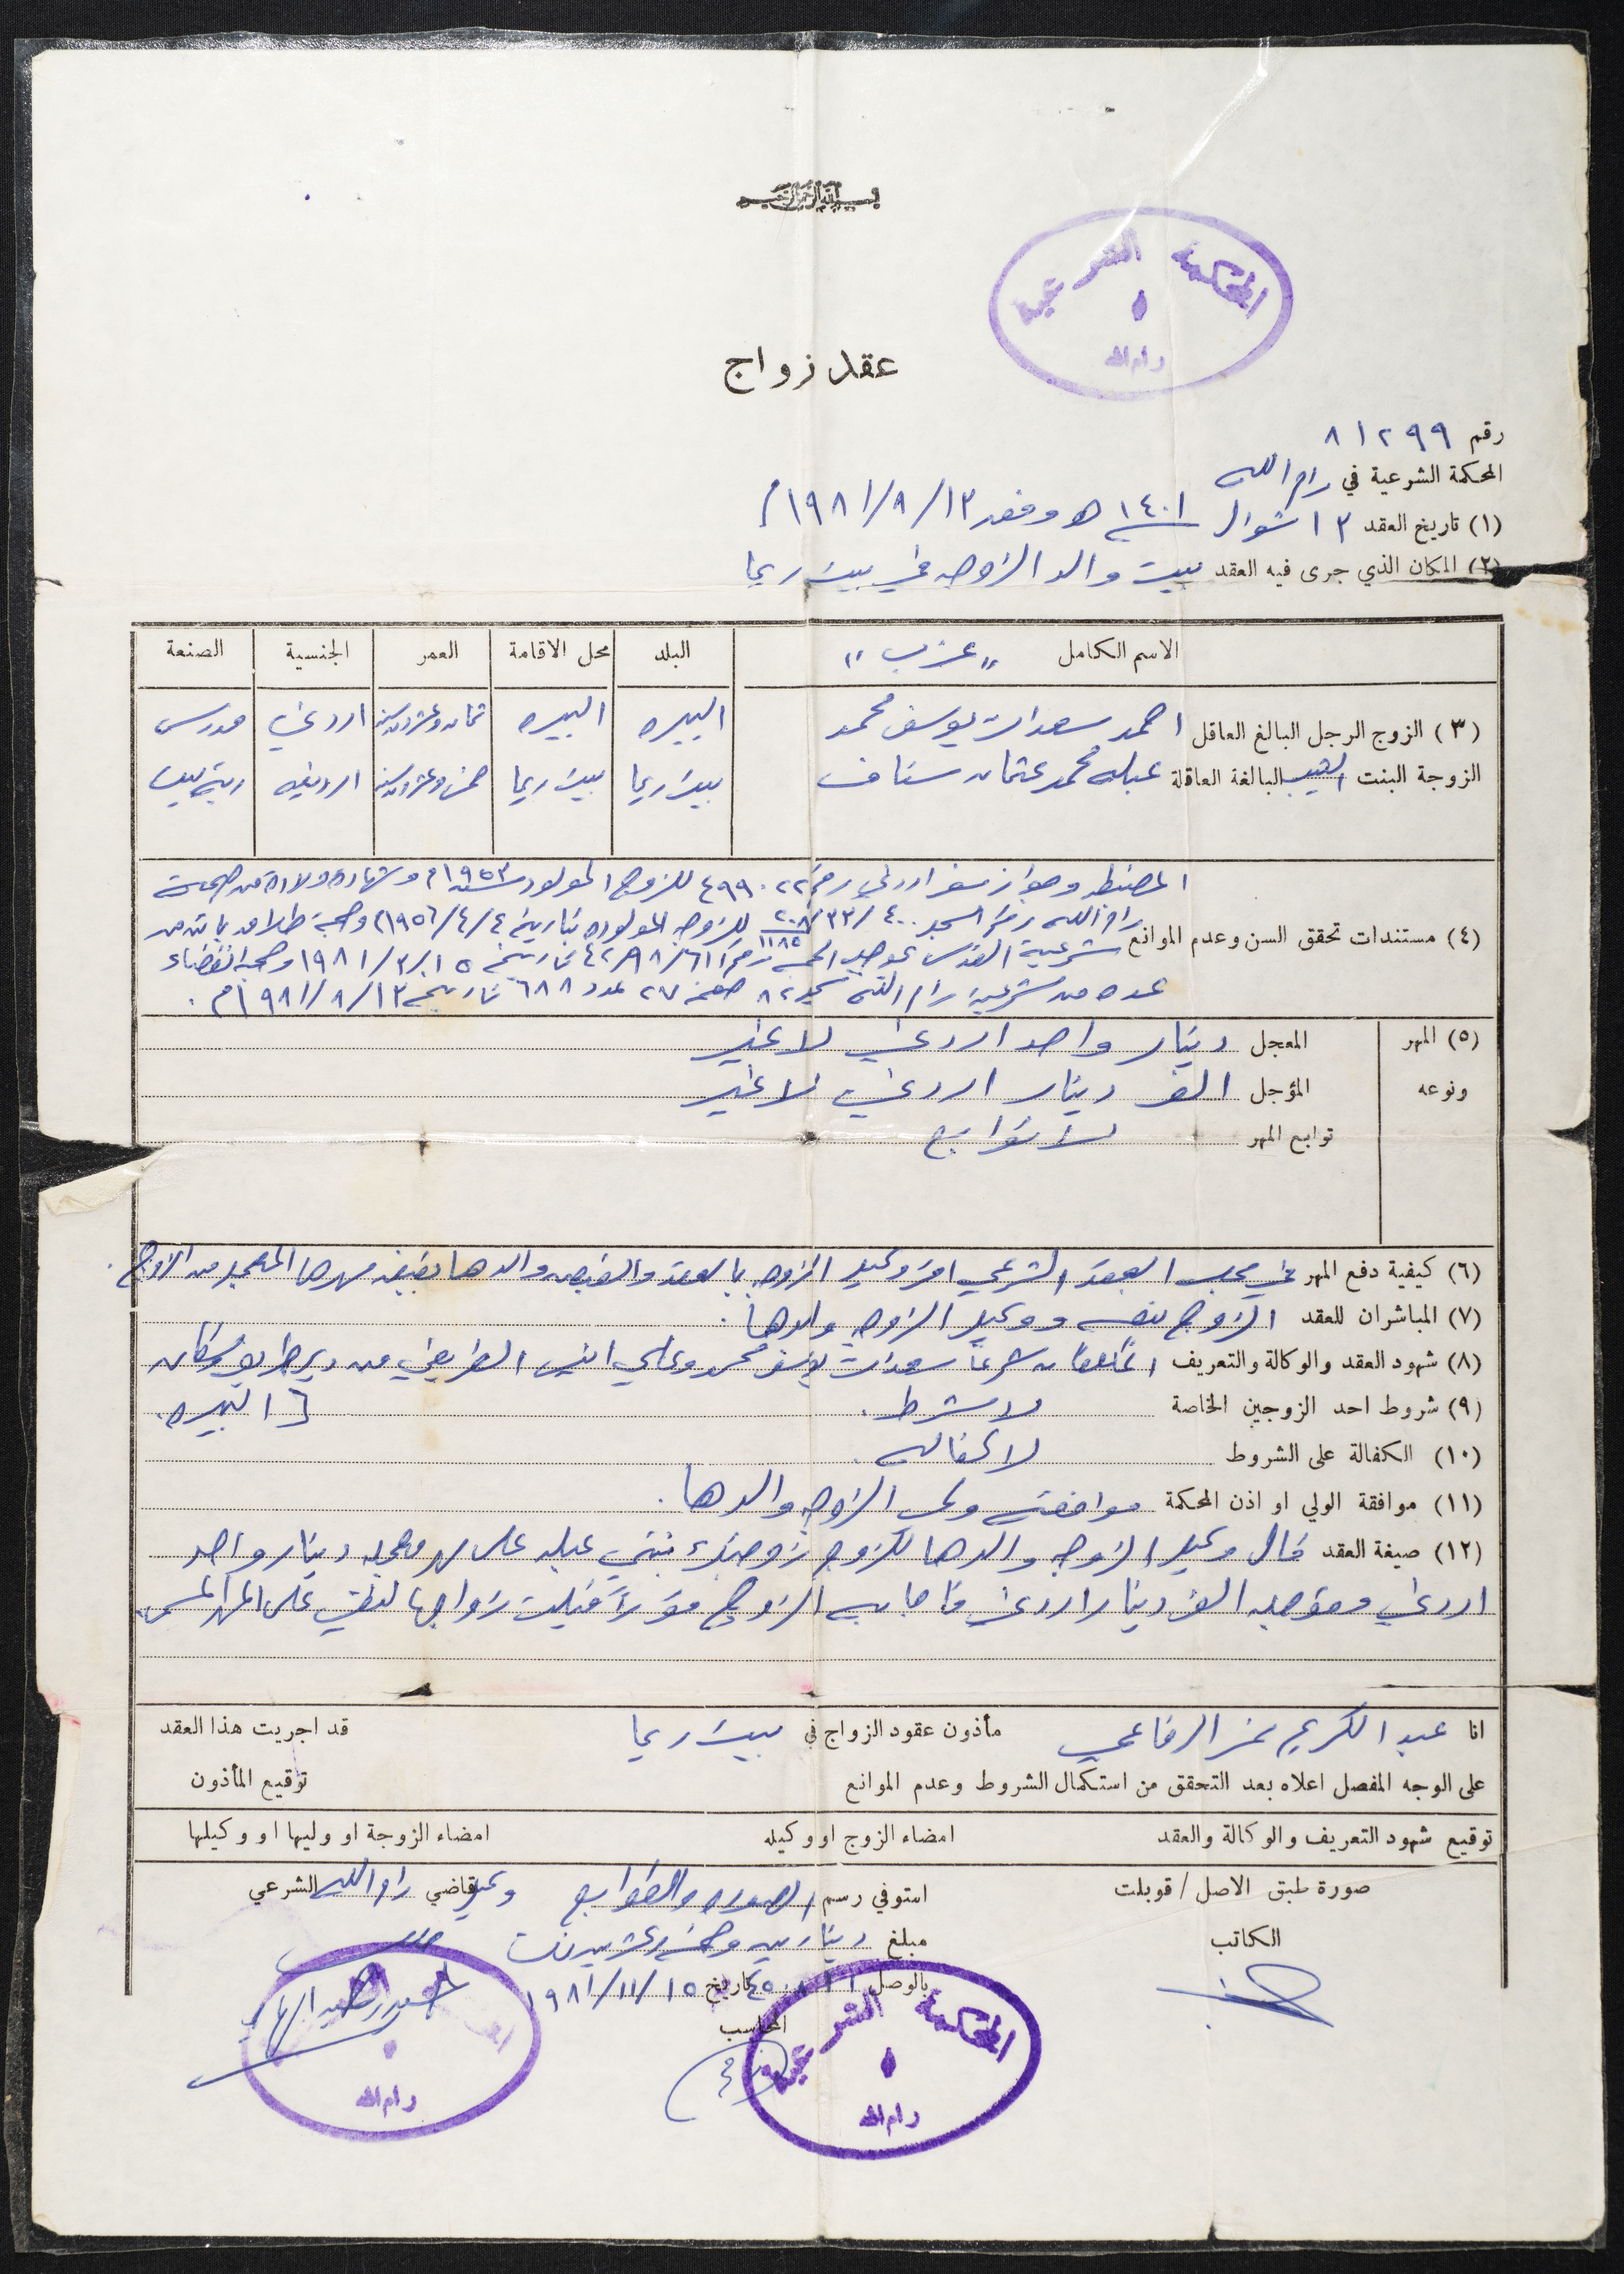 بسم الله الرحمن الرحيم
المحكمة الشرعية
رام الله
عقد زواج
رقم ٨١٢٩٩
المحكمة الشرعية في رام الله
(١) تاريخ العقد ١٣ شوال ١٤٠١ هـ وفقه ١٩٨١/٨/١٣م
(٢) المكان الذي جرى فيه العقد بيت والد الزوجه في بيت ريما
الاسم الكامل "عزب" البلد محل الاقامة العمر الجنسية الصنعة
(٣) الزوج الرجل البالغ العاقل احمد سعدات يوسف محمد البيره البيره ثمان وعشرون سنه اردني مدرس
الزوجة البنت الثيب البالغة العاقلة عبله محمد عثمان سناف بيت ريما بيت ريما خمس وعشرون سنه اردنيه ربة بيت
المضبطه وجواز سفر اردني رقم ٤٩٩٠٢٢ للزوج المولود سنة ١٩٥٣م وشهادة ولاده من صحة
رام الله رقم السجل للزوجه المولوده بتاريخ ١٩٥٦/٤/٤ وحجة طلاق بائن من
(٤) مستندات تحقق السن وعدم الموانع شرعية القدس بموجب الحجه رقم تاريخ ١٩٨١/٣/١٥ وحجة انقضاء
عده من شرعية رام الله سجل ٨٢ صفحه ٢٧ عدد ٦٨٨ تاريخ ١٩٨١/٨/١٣م.
(٥) المهر المعجل دينار واحد اردني لا غير
ونوعه المؤجل الف دينار اردني لا غير
توابع المهر لا توابع
(٦) كيفية دفع المهر في مجلس العقد الشرعي اقر وكيل الزوجه بالعقد والقبض والدها بقبضه مهرها المعجل من الزوج.
(٧) المباشران للعقد الزوج بنفسه ووكيل الزوجه والدها.
(٨) شهود العقد والوكالة والتعريف المكلفان شرعاً سعدات يوسف محمد وعلي انيس الطريفي من دير طريف وسكان
(٩) شروط احد الزوجين الخاصة لا شرط. [البيره.
(١٠) الكفالة على الشروط لا كفاله.
(١١) موافقة الولي او اذن المحكمة موافقة ولي الزوجه والدها.
(١٢) صيغة العقد قال وكيل الزوجه والدها للزوج زوجتك بنتي عبله على مهر معجله دينار واحد
اردني ومؤجله الف دينار اردني فاجابه الزوج فوراً قبلت زواجها لنفسي على المهر المسمى.
انا عبد الكريم الرفاعي مأذون عقود الزواج في بيت ريما قد اجريت هذا العقد
على الوجه المفصل اعلاه بعد التحقق من استكمال الشروط وعدم الموانع توقيع المأذون
توقيع شهود التعريف والوكالة والعقد امضاء الزوج او وكيله امضاء الزوجة او وليها او وكيلها
صورة طبق الاصل / قوبلت استوفي رسم الصوره والطوابع وكيل قاضي رام الله الشرعي
الكاتب مبلغ دينارين وخمسة وعشرين فلسا
بالوصل تاريخ ١٩٨١/١١/١٥
المحاسب
المحكمة الشرعية
رام الله
رام الله